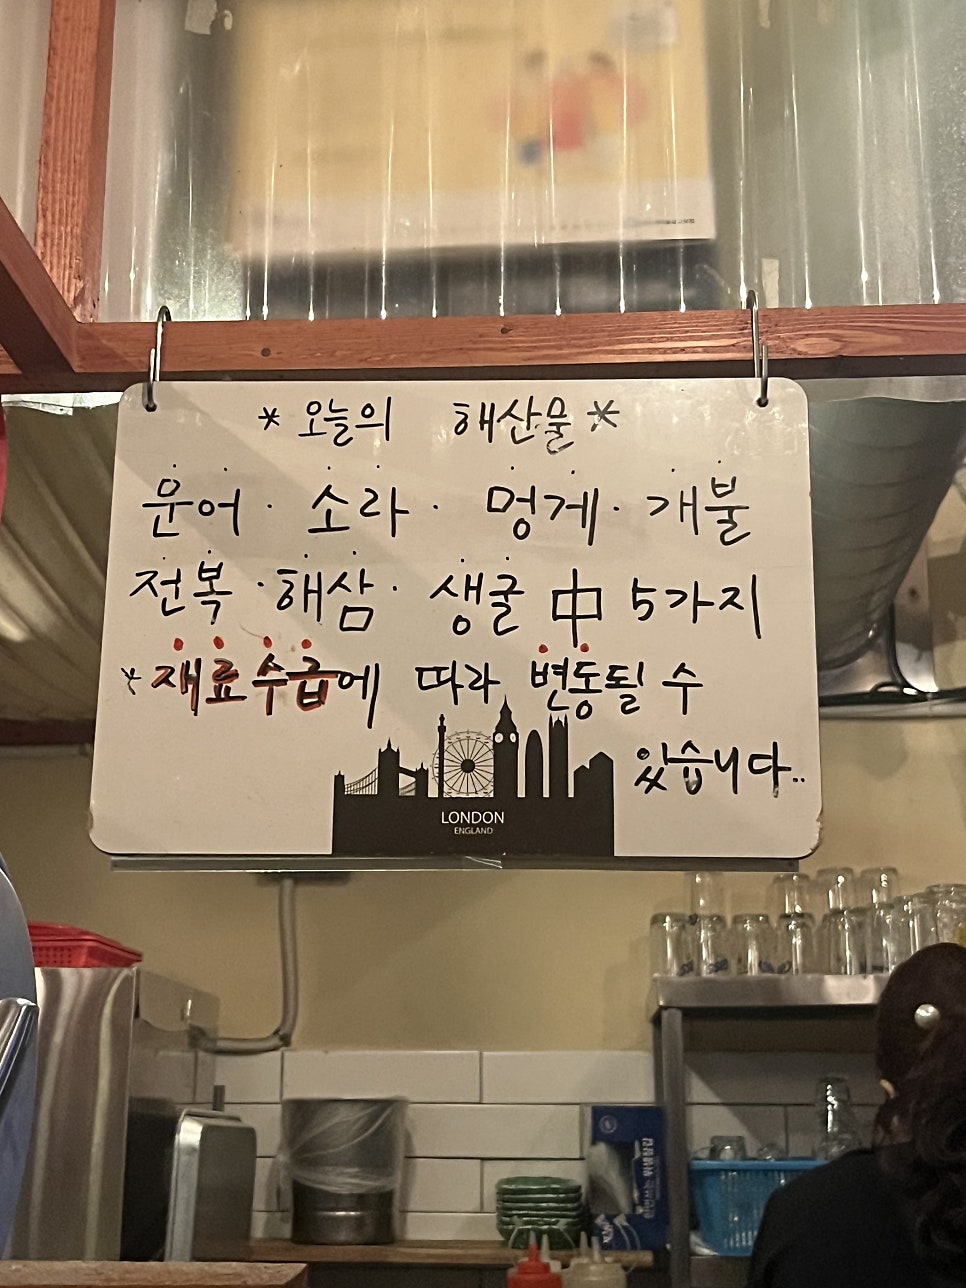 * 오늘의 해산물 *
문어 · 소라 · 멍게 · 개불
전복 · 해삼 · 생굴 中 5가지
* 재료수급에 따라 변동될 수
있습니다..
LONDON
ENGLAND